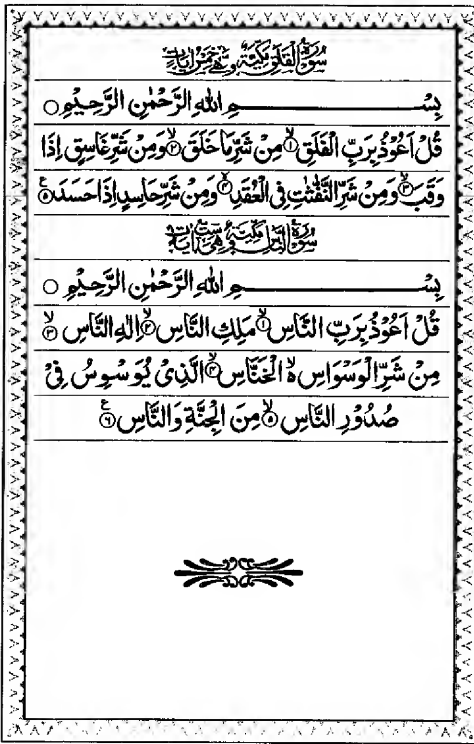 سُوْرَةُ الْفَلَقِ مَكِّيَّةٌ وَّهِیَ خَمْسُ اٰیَاتٍ
بِسْــــــــــمِ اللهِ الرَّحْمٰنِ الرَّحِیْمِ ○
قُلْ اَعُوْذُ بِرَبِّ الْفَلَقِ ۙ﴿۱﴾ مِنْ شَرِّ مَا خَلَقَ ۙ﴿۲﴾ وَمِنْ شَرِّ غَاسِقٍ اِذَا
وَقَبَ ۙ﴿۳﴾ وَمِنْ شَرِّ النَّفّٰثٰتِ فِی الْعُقَدِ ۙ﴿۴﴾ وَمِنْ شَرِّ حَاسِدٍ اِذَا حَسَدَ ﴿۵﴾ ع
سُوْرَةُ النَّاسِ مَكِّيَّةٌ وَّهِیَ سِتُّ اٰیَاتٍ
بِسْــــــــــمِ اللهِ الرَّحْمٰنِ الرَّحِیْمِ ○
قُلْ اَعُوْذُ بِرَبِّ النَّاسِ ۙ﴿۱﴾ مَلِكِ النَّاسِ ۙ﴿۲﴾ اِلٰهِ النَّاسِ ۙ﴿۳﴾
مِنْ شَرِّ الْوَسْوَاسِ ۙ۬ الْخَنَّاسِ ۙ﴿۴﴾ الَّذِیْ یُوَسْوِسُ فِیْ
صُدُوْرِ النَّاسِ ۙ﴿۵﴾ مِنَ الْجِنَّةِ وَالنَّاسِ ﴿۶﴾ ع